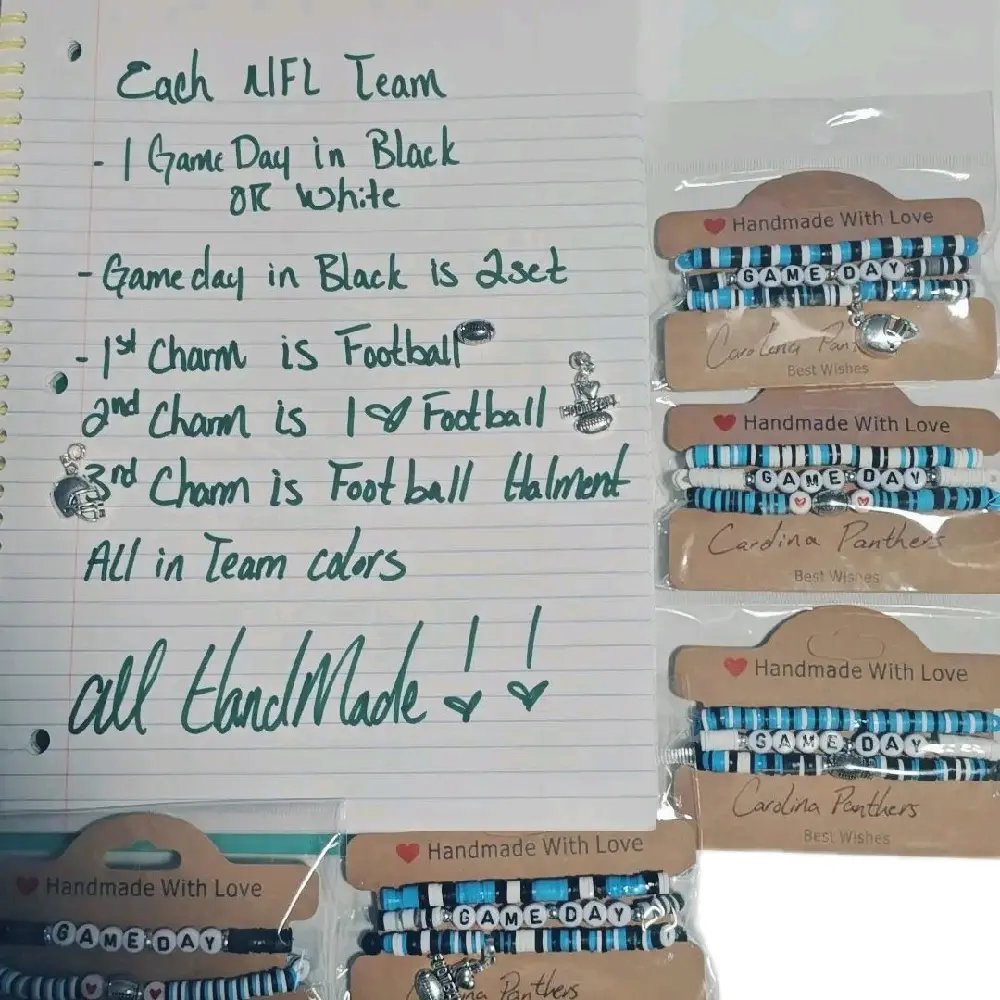 Each NFL Team
- 1 Game Day in Black
OR White
- Gameday in Black is 2set
- 1st Charm is Football
2nd Charm is I ♡ Football
3rd Charm is Football Halment
All in Team colors
All HandMade !!
Handmade With Love
GAME DAY
Carolina Pan
Best Wishes
Handmade With Love
GAME DAY
Carolina Panthers
Best Wishes
Handmade With Love
GAME DAY
Carolina Panthers
Best Wishes
Handmade With Love
GAME DAY
Handmade With Love
GAME DAY
Panthers